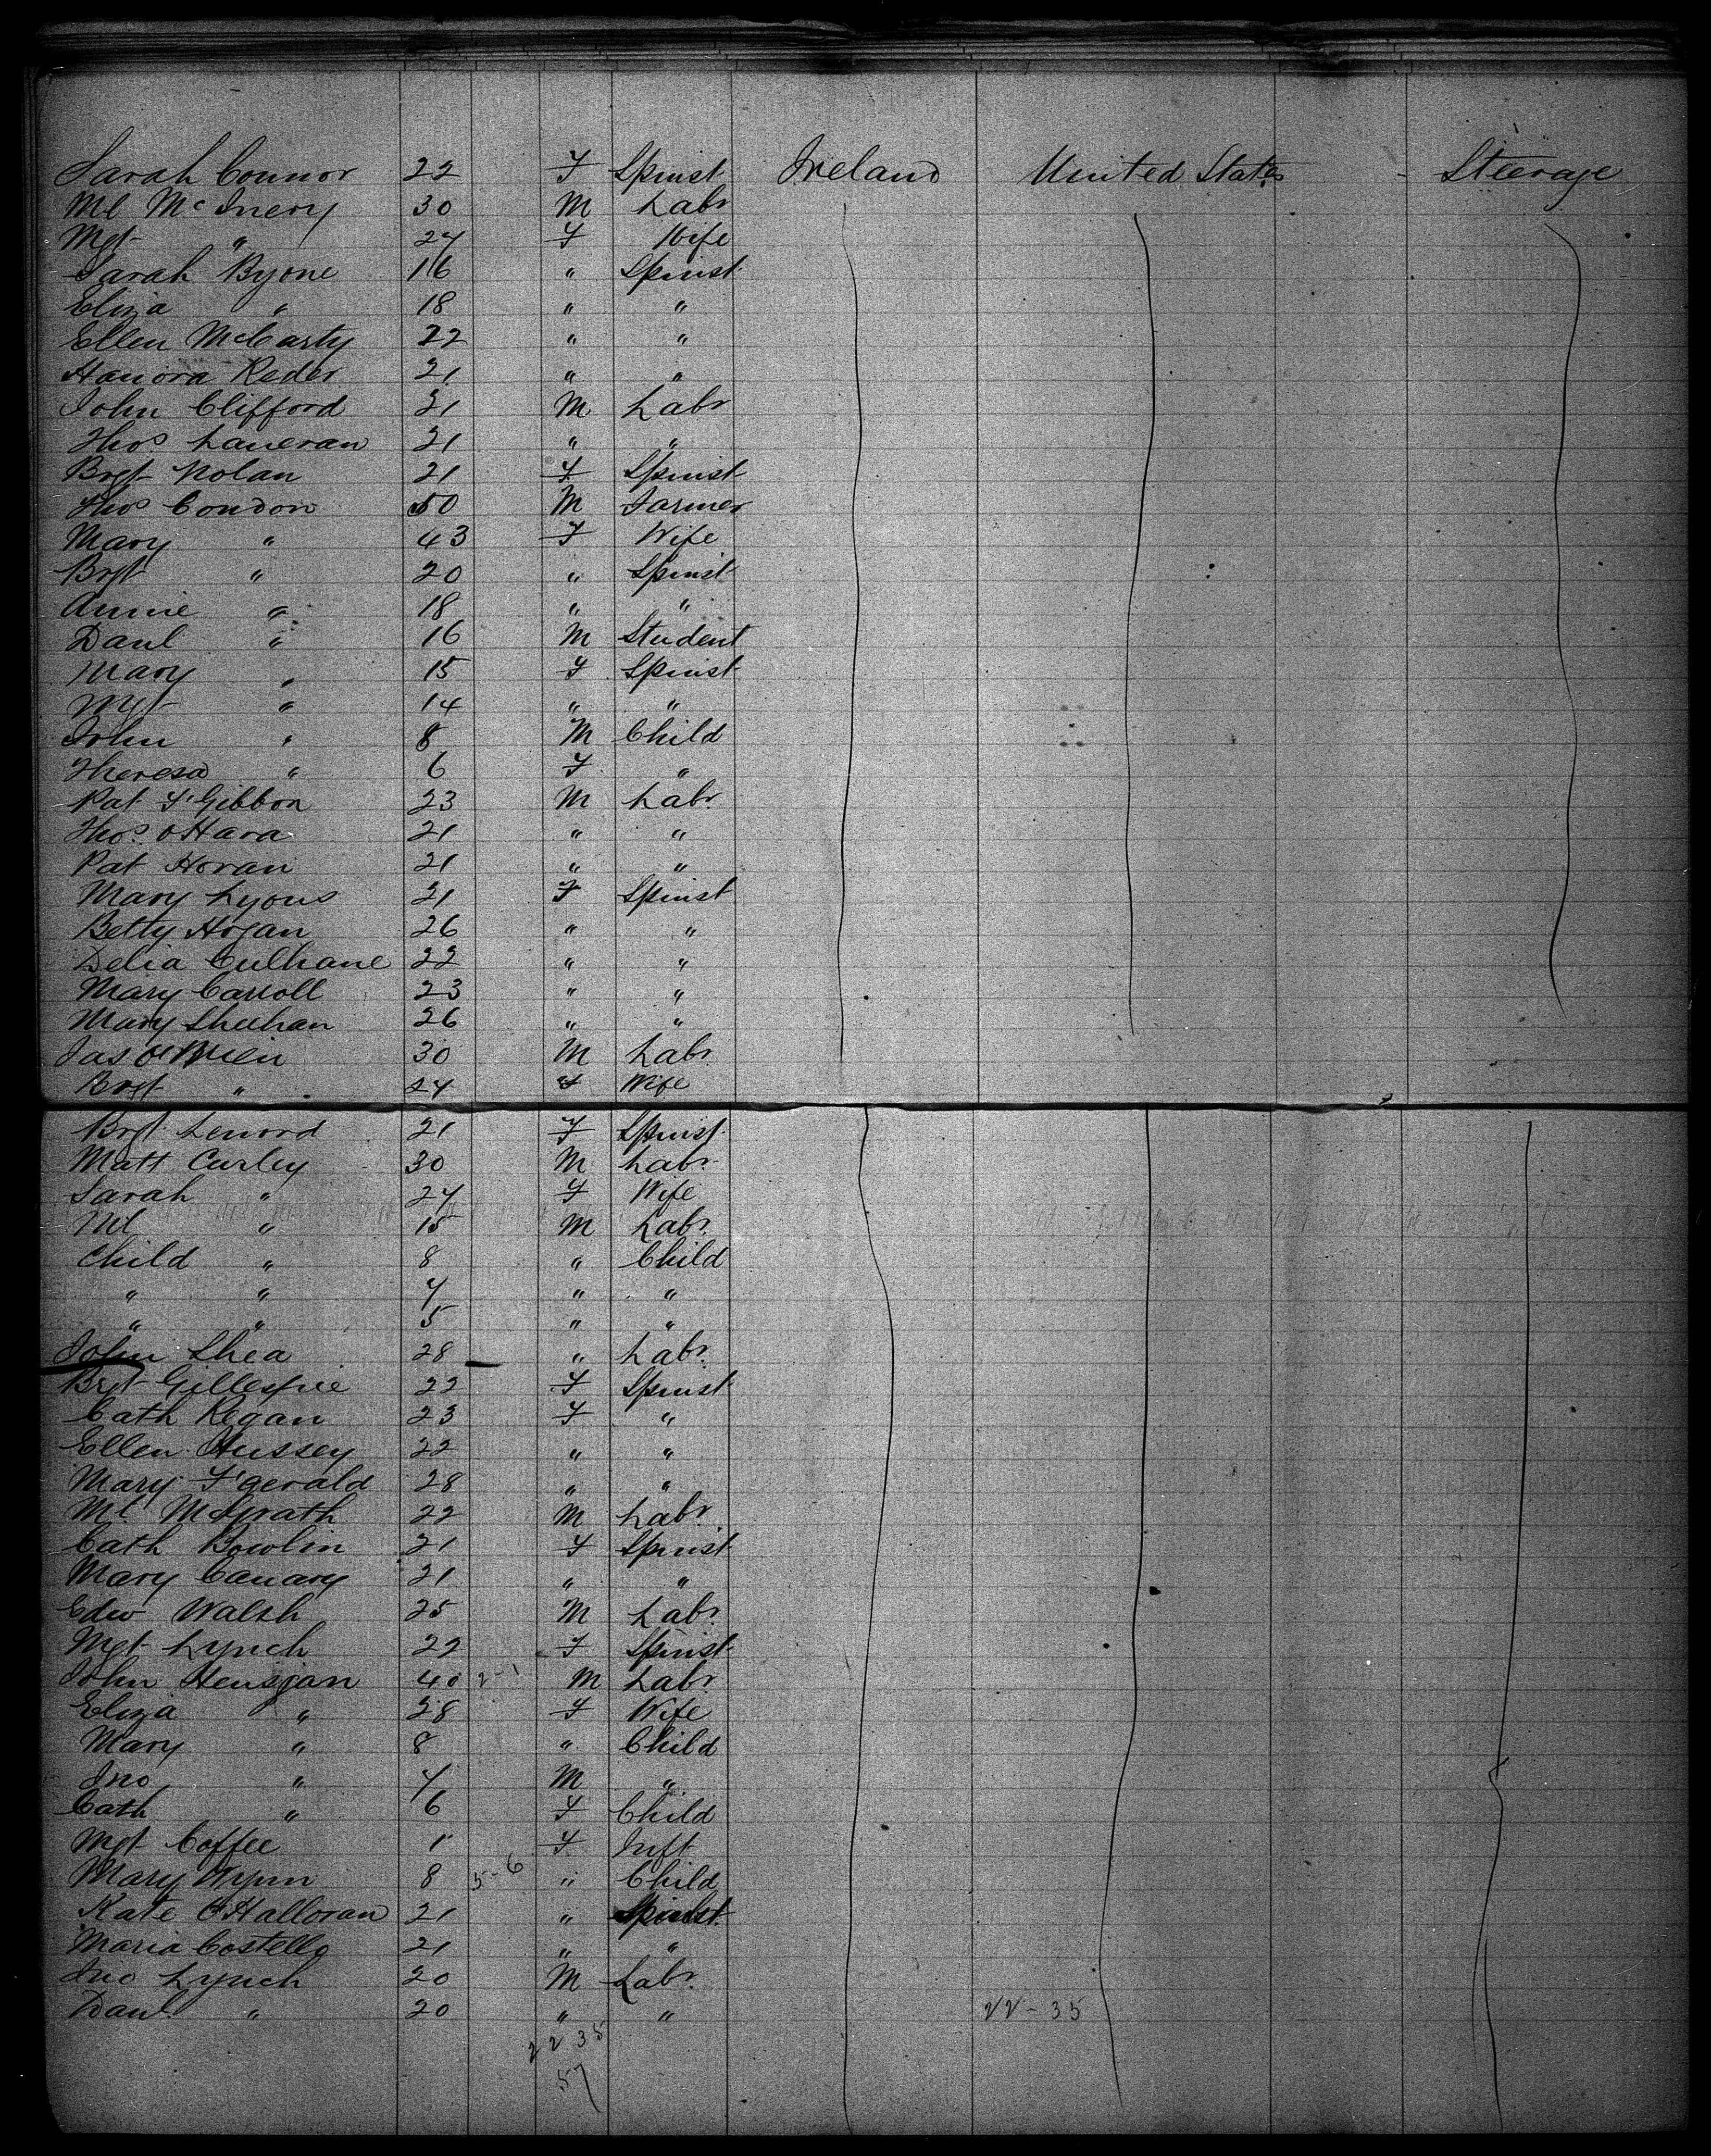 Sarah Connor 22 F Spinst Ireland United States Steerage
Ml McInery 30 M Labr
Mgt " 24 F Wife
Sarah Byone 16 " Spinst
Eliza " 18 " "
Ellen McCarty 22 " "
Hanora Reder 21 " "
John Clifford 21 M Labr
Thos Laneran 21 " "
Brgt Nolan 21 F Spinst
Thos Condon 50 M Farmer
Mary " 43 F Wife
Brgt " 20 " Spinst
Annie " 18 " "
Danl " 16 M Student
Mary " 15 F Spinst
Mgt " 14 " "
John " 8 M Child
Theresa " 6 F "
Pat F'Gibbon 23 M Labr
Thos OHara 21 " "
Pat Horan 21 " "
Mary Lyons 21 F Spinst
Betty Hogan 26 " "
Delia Culhane 22 " "
Mary Carroll 23 " "
Mary Sheehan 26 " "
Jas OBrien 30 M Labr
Brgt " 24 F Wife
Brgt Lenord 21 F Spinst
Matt Curley 30 M Labr
Sarah " 24 F Wife
Ml " 15 M Labr
Child " 8 " Child
" " 7 " "
" " 5 " "
John Shea 28 " Labr
Brgt Gillespie 22 F Spinst
Cath Regan 23 F "
Ellen Hussey 22 " "
Mary F'gerald 28 " "
Ml McGrath 22 M Labr
Cath Bowlin 21 F Spinst
Mary Canary 21 " "
Edw Walsh 25 M Labr
Mgt Lynch 22 F Spinst
John Hensgan 40 2-1 M Labr
Eliza " 28 F Wife
Mary " 8 " Child
Jno " 7 M "
Cath " 6 F Child
Mgt Coffee 1 F Inft
Mary Wynn 8 5-6 " Child
Kate O'Halloran 21 " Spinst
Maria Costello 21 " "
Jno Lynch 20 M Labr
Danl " 20 " " 22-35
22 35
57